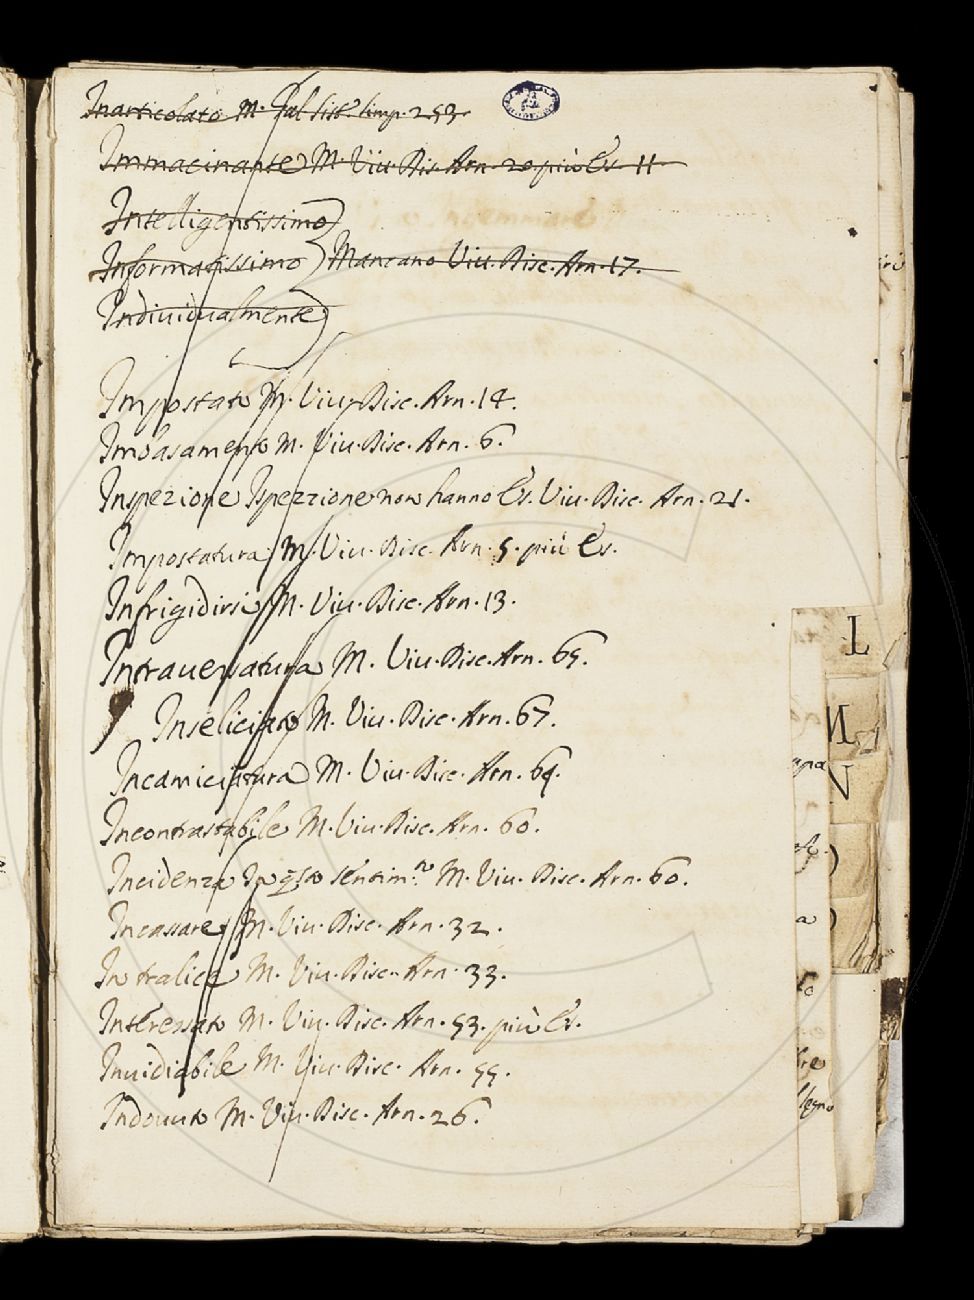 Inarticolato M. Gal. Sist. simp. 253.
Immacinante M. Viu. Dis. Arn. 20. più Es. 11
Intelligentissimo
Informatissimo Mancano Viu. Disc. Arn. 17.
Indiuidualmente
Impostato M. Viu. Disc. Arn. 14.
Imbasamento M. Viu. Disc. Arn. 6.
Inspezione Ispezzione non hanno Es. Viu. Disc. Arn. 21.
Impostatura M. Viu. Disc. Arn. 5. più Es.
Infrigidirsi M. Viu. Disc. Arn. 13.
Intrauersatura M. Viu. Disc. Arn. 65.
Inseliciato M. Viu. Disc. Arn. 67.
Incamiciatura M. Viu. Disc. Arn. 64.
Incontrastabile M. Viu. Disc. Arn. 60.
Incidenza In qsto sentim.to M. Viu. Disc. Arn. 60.
Incassare M. Viu. Disc. Arn. 32.
In tralice M. Viu. Disc. Arn. 33.
Interessato M. Viu. Disc. Arn. 53. più Es.
Inuidiabile M. Viu. Disc. Arn. 55.
Indouuto M. Viu. Disc. Arn. 26.